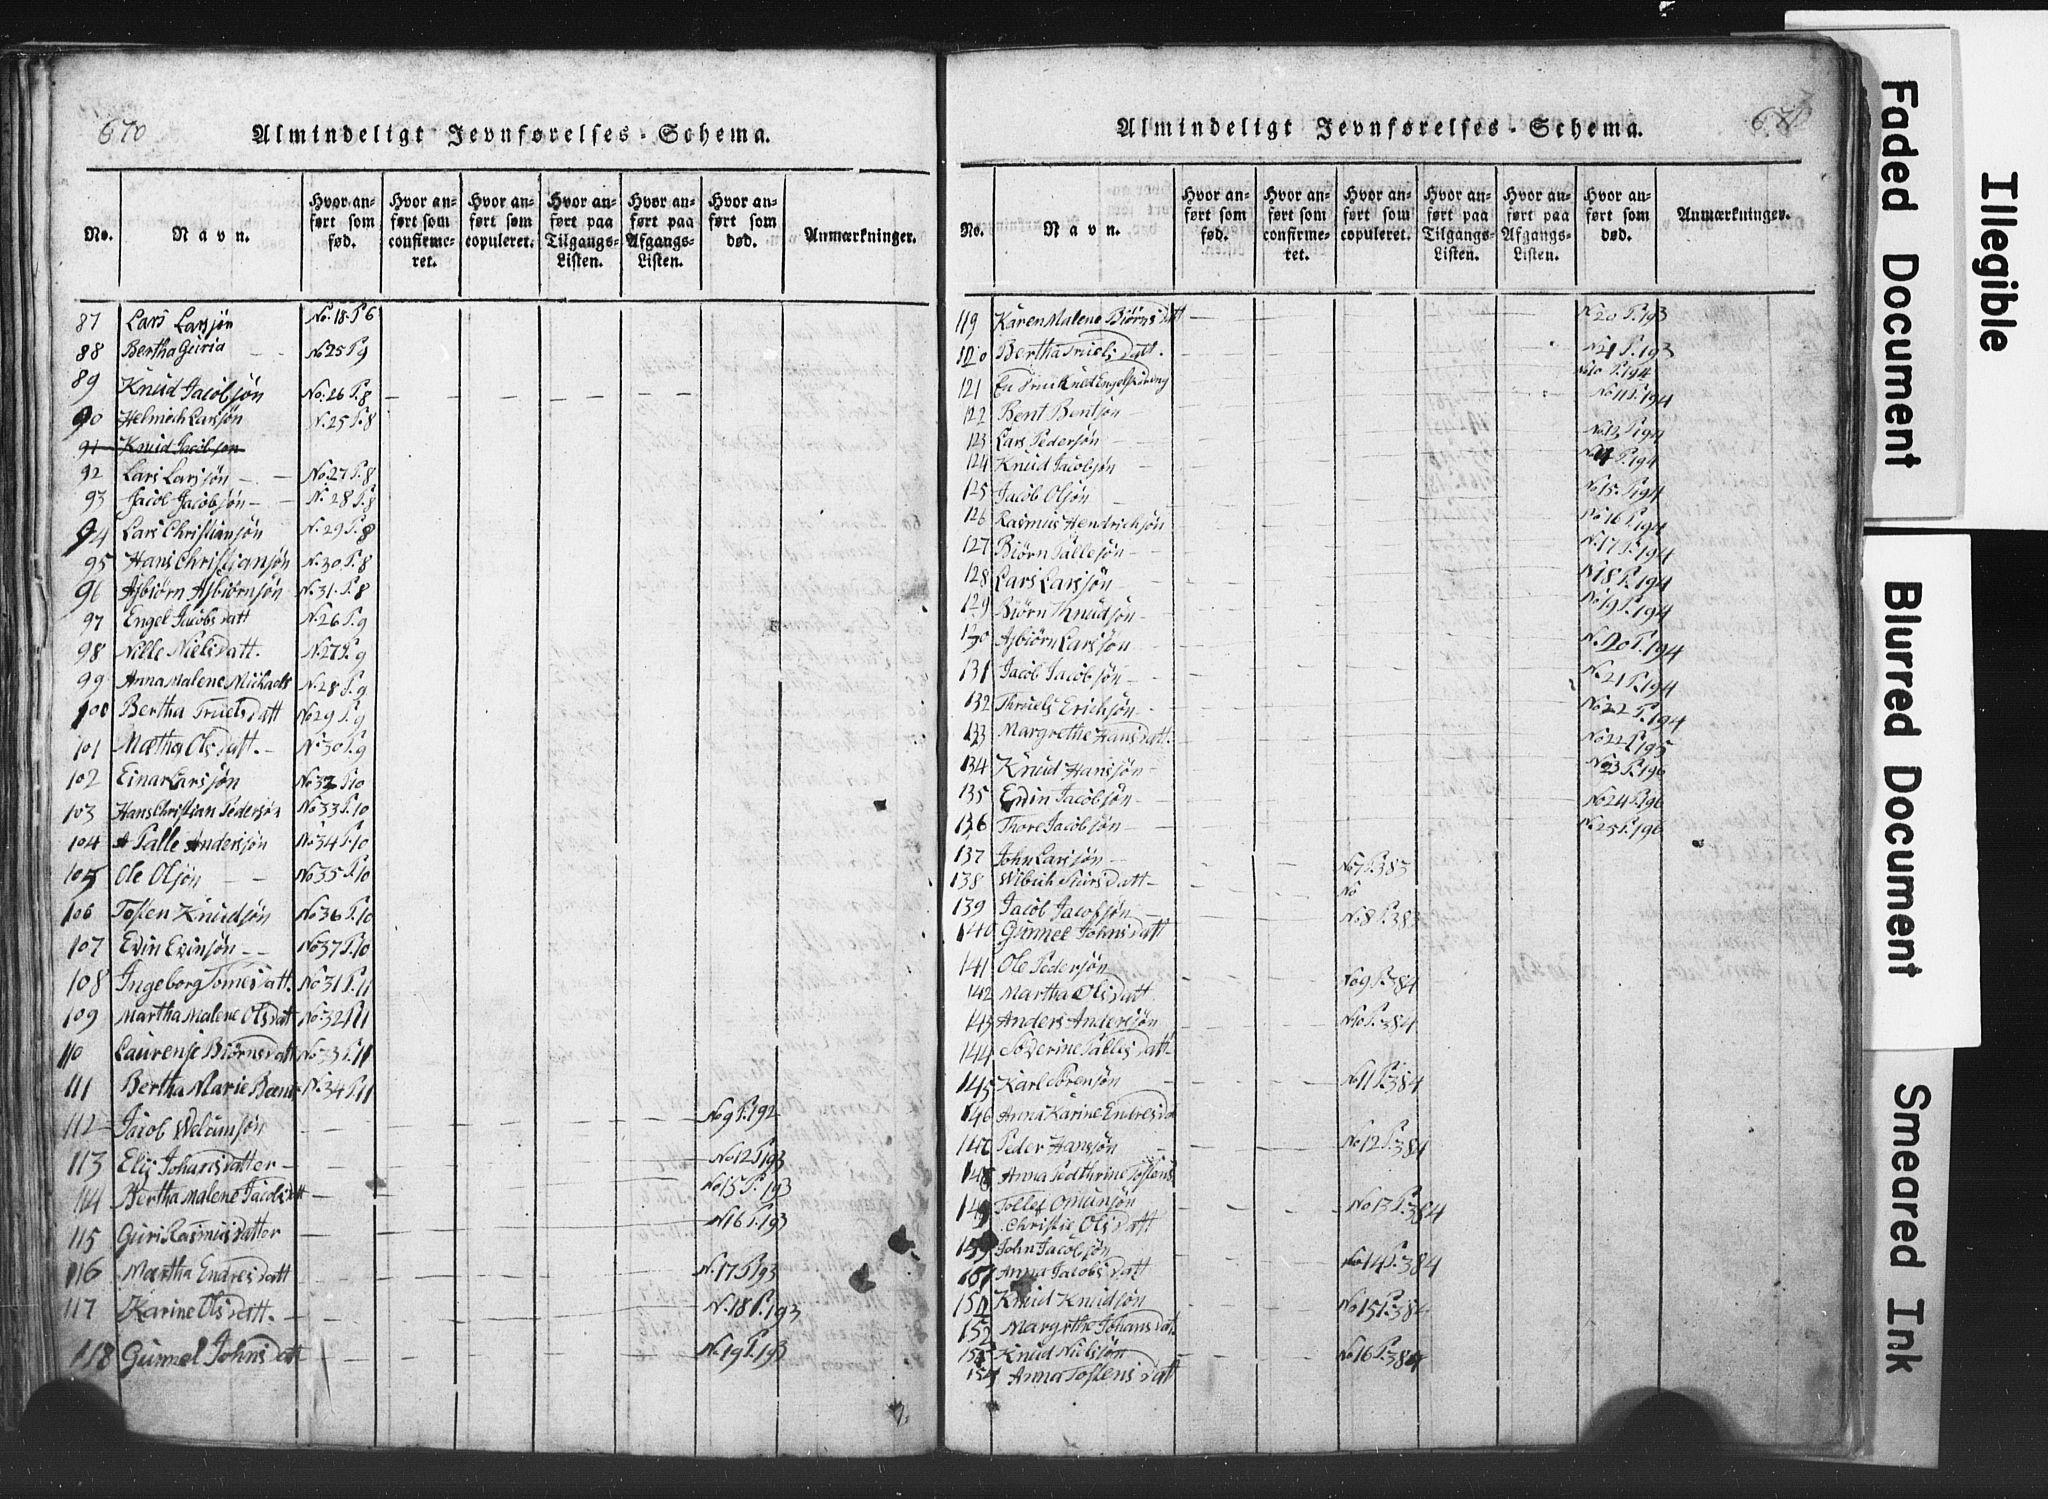 670
Almindeligt Jevnførelses-Schema.
No.
Navn.
Hvor an-
ført som
fød.
Hvor an-
ført som
confirme-
ret.
Hvor an-
ført som
copuleret.
Hvor an-
ført paa
Tilgangs-
Listen.
Hvor an-
ført paa
Afgangs-
Listen.
Hvor an-
ført som
død.
Anmærkninger.
87 Lars Larsjön No. 18. P. 6
88 Bertha Guria No 25 P. 9
89 Knud Jacobsjön No. 26 P. 8
90 Helmich Larsjön N. 25 P. 8
91 Knud Jacobsjon
92 Lars Larsjön No. 27. P. 8
93 Jacob Jacobsjön N. 28 P. 8
94 Lars Christiansjön N. 29 P. 8
95 Hans Christiansjön N. 30 P. 8
96 Asbiørn Asbiørnsjön N. 31. P. 8
97 Engel Jacobsdatt N. 26 P. 9
98 Nille Nielsdatt. N. 27 P. 9
99 Anna Malene Michaels N. 28 P. 9
100 Bertha Truelsdatt No 29 P. 9
101 Mætha Olsdatt. N. 30 P. 9
102 Einar Larsjön No 32 P. 10
103 Hans Christian Pedersjön No 33 P. 10
104 Palle Andersjön No 34 P. 10
105 Ole Olsjön No 35 P. 10
106 Tosten Knudsjön No 36 P. 10
107 Evin Evinsjön No 37 P. 10
108 Ingeborg Tomesdatt. No 31 P. 11
109 Martha Malene Olsdat No. 32 P. 11
110 Laurense Biørnsdatt No 33 P. 11
111 Bertha Marie Bent N. 34 P. 11
112 Jacob Welumsjön No 9 P. 192
113 Elis Johansdatter No 12 P. 193
114 Bertha Malene Jacobsdatt No 15 P. 193
115 Guri Rasmusdatter N 16 P. 193
116 Martha Endresdatt N. 17 P. 193
117 Karine Olsdatt. N. 18 P. 193
118 Gunnel Johnsdatt N. 19 P. 193
Almindeligt Jevnførelses-Schema.
No.
Navn.
Hvor an-
ført som
fød.
Hvor an-
ført som
confirme-
ret.
Hvor an-
ført som
copuleret.
Hvor an-
ført paa
Tilgangs-
Listen.
Hvor an-
ført paa
Afgangs-
Listen.
Hvor an-
ført som
død.
Anmærkninger.
119 Karen Malene Biørnsdatt N 20 P. 193
120 Bertha Truelsdatt. N 21 P. 193
121 No 10 P. 194
122 Bent Bentsjön No 11 P. 194
123 Lars Pedersjön No 12 P. 194
124 Knud Jacobsjön No 14 P. 194
125 Jacob Olsjön No 15 P. 194
126 Rasmus Hendrichsjön No 16 P. 194
127 Biørn Pallesjön N. 17 P. 194
128 Lars Larsjön N 18 P. 194
129 Biørn Knudsjön No 19 P. 194
130 Asbiørn Larsjön N. 20 P. 194
131 Jacob Jacobsjön N. 21 P. 194
132 Thruels Erichsjön No 22 P. 194
133 Margrethe Hansdatt. No 22 P. 195
134 Knud Hansjön No 23 P. 196
135 Evin Jacobsjön No 24 P. 196
136 Thore Jacobsjön No 25 P. 196
137 John Larsjön No 7 P. 383
138 Wibich Siursdatt No
139 Jacob Jacobsjön No 8 P. 383
140 Gunnel Johnsdatt
141 Ole Pedersjön No 9 P. 384
142 Martha Olsdatt
143 Anders Andersjön No 10 P. 384
144 Søverine Pallesdatt
145 Karl Sörensjön No 11 P. 384
146 Anna Karine Endresda
147 Peder Hansjön No 12 P. 384
148 Anna Tostens
149 Tollef Omunsjön No 13 P. 384
Christie Olsdatt
John Jacobsjön No 14 P. 384
Anna Jacobsdatt
151 Knud Knudsjön No 15 P. 384
152 Margrethe Johansdat
153 Knud Nielsjön No 16 P. 384
154 Anna Tostensdatt
Illegible
Faded Document
Blurred Document
Smeared Ink